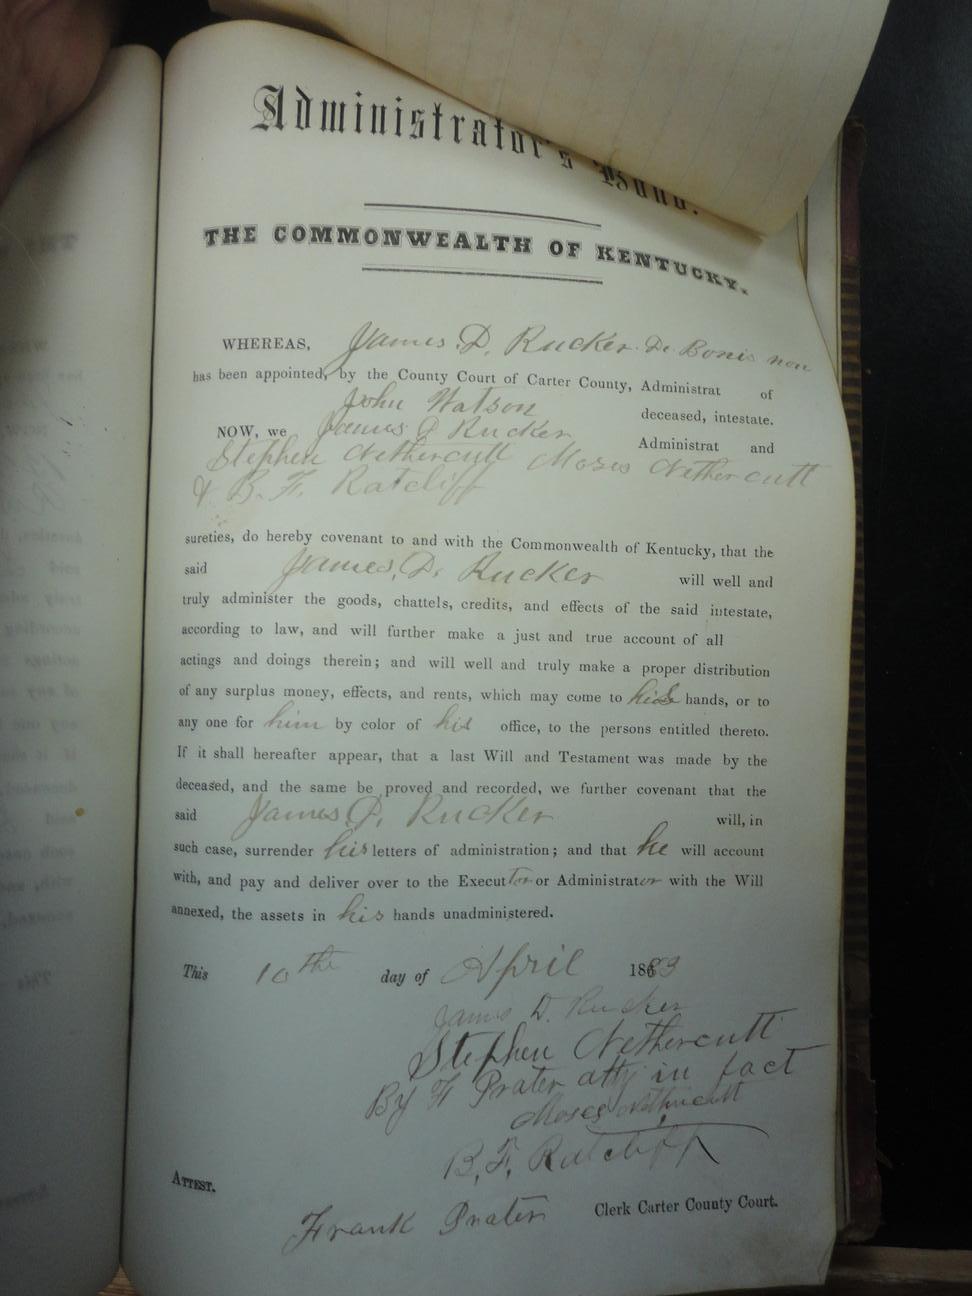 Administrator's Bond.
THE COMMONWEALTH OF KENTUCKY.
WHEREAS, James D. Rucker De Bonis non
has been appointed, by the County Court of Carter County, Administrat of
John Watson deceased, intestate.
NOW, we James D Rucker Administrat and
Stephen Nethercutt Moses Nethercutt
& B. F. Ratcliff
sureties, do hereby covenant to and with the Commonwealth of Kentucky, that the
said James, D. Rucker will well and
truly administer the goods, chattels, credits, and effects of the said intestate,
according to law, and will further make a just and true account of all
actings and doings therein; and will well and truly make a proper distribution
of any surplus money, effects, and rents, which may come to his hands, or to
any one for him by color of his office, to the persons entitled thereto.
If it shall hereafter appear, that a last Will and Testament was made by the
deceased, and the same be proved and recorded, we further covenant that the
said James D. Rucker will, in
such case, surrender his letters of administration; and that he will account
with, and pay and deliver over to the Executor or Administrator with the Will
annexed, the assets in his hands unadministered.
This 10th day of April 1883
James D. Rucker
Stephen Nethercutt
By F Prater atty in fact
Moses Nethercutt
B. F. Ratcliff
ATTEST.
Frank Prater Clerk Carter County Court.